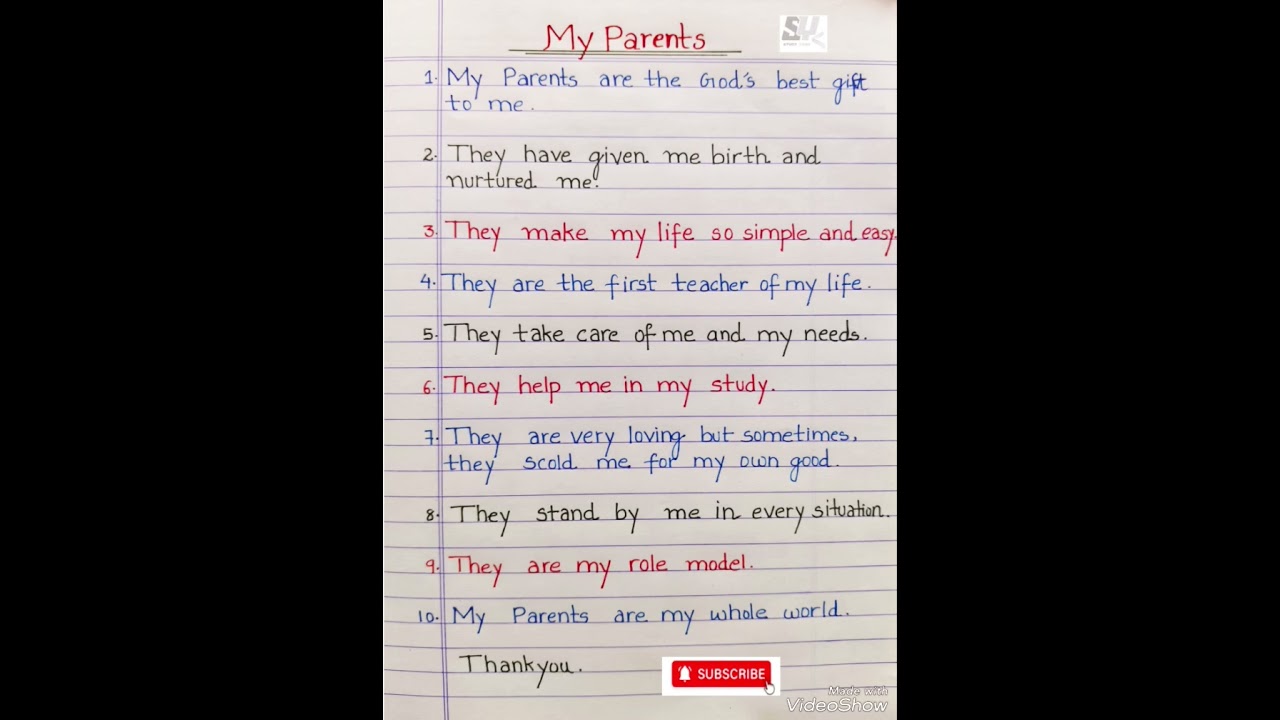 My Parents
1. My Parents are the God's best gift
to me.
2. They have given me birth and
nurtured me.
3. They make my life so simple and easy.
4. They are the first teacher of my life.
5. They take care of me and my needs.
6. They help me in my study.
7. They are very loving but sometimes,
they scold me for my own good.
8. They stand by me in every situation.
9. They are my role model.
10. My Parents are my whole world.
Thankyou.
SUBSCRIBE
Made with
VideoShow